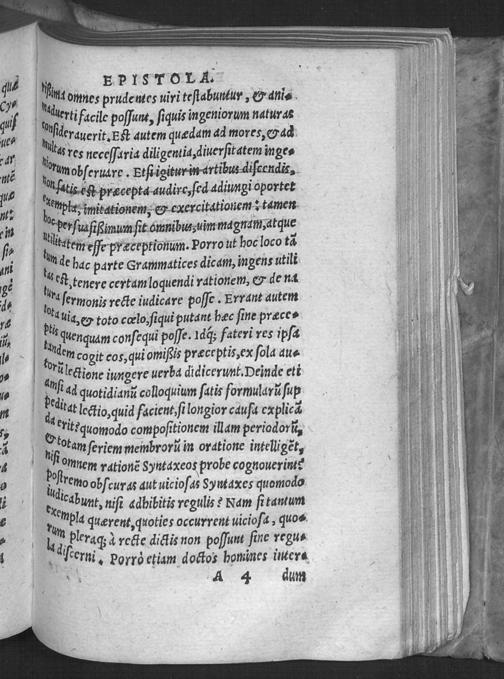 EPISTOLA.
rißima omnes prudentes uiri testabuntur, & ani⸗
maduerti facile possunt, siquis ingeniorum naturas
considerauerit. Est autem quædam ad mores, & ad
multas res necessaria diligentia, diuersitatem inge⸗
niorum obseruare. Etsi igitur in artibus discendis,
non satis est præcepta audire, sed adiungi oportet
exempla, imitationem, & exercitationem: tamen
hoc persuasißimum sit omnibus, uim magnam, atque
utilitatem esse præceptionum. Porro ut hoc loco tã
tum de hac parte Grammatices dicam, ingens utili
tas est, tenere certam loquendi rationem, & de na
tura sermonis recte iudicare posse. Errant autem
tota uia, & toto cœlo, siqui putant hæc sine præce⸗
ptis quenquam consequi posse. Idq; fateri res ipsa
tandem cogit eos, qui omißis præceptis, ex sola au⸗
torũ lectione iungere uerba didicerunt. Deinde eti
amsi ad quotidianũ colloquium satis formularũ sup
peditat lectio, quid facient, si longior causa explicã
da erit? quomodo compositionem illam periodorũ,
& totam seriem membrorũ in oratione intelligẽt,
nisi omnem rationẽ Syntaxeos probe cognouerint?
postremo obscuras aut uiciosas Syntaxes quomodo
iudicabunt, nisi adhibitis regulis? Nam si tantum
exempla quærent, quoties occurrent uiciosa, quo⸗
rum pleraq; à recte dictis non possunt sine regu⸗
la discerni. Porrò etiam doctos homines inter⸗
A 4 dum